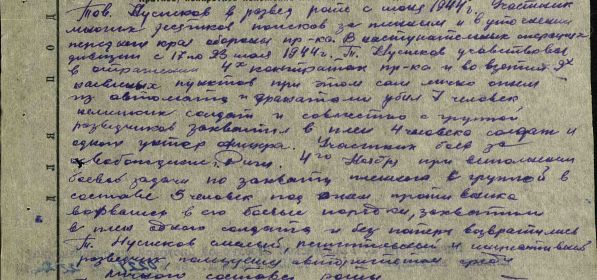 Тов. Нусиков в развед роте с июня 1944 г. Участник
многих удачных поисков за пленным и в уточнении
переднего края обороны пр-ка. В наступательных операциях
дивизии с 17 по 23 июля 1944 г. Т. Нусиков участвовал
в отражении 4х контратак пр-ка и во взятии 9х
населенных пунктов при этом сам лично огнем
из автомата и гранатами убил 7 человек
немецких солдат и совместно с группой
разведчиков захватил в плен 4 человека солдат и
одного унтер офицера. Участник боев за
освобождение г. Риги. 4го Ноября при выполнении
боевой задачи по захвату пленного с группой в
составе 5 человек под огнем противника
ворвались в его боевые порядки, захватили
в плен одного солдата и без потерь возвратились
Т. Нусиков смелый, решительный и инициативный
разведчик пользуется авторитетом среди
личного состава роты
ЛИНИЯ ПОД